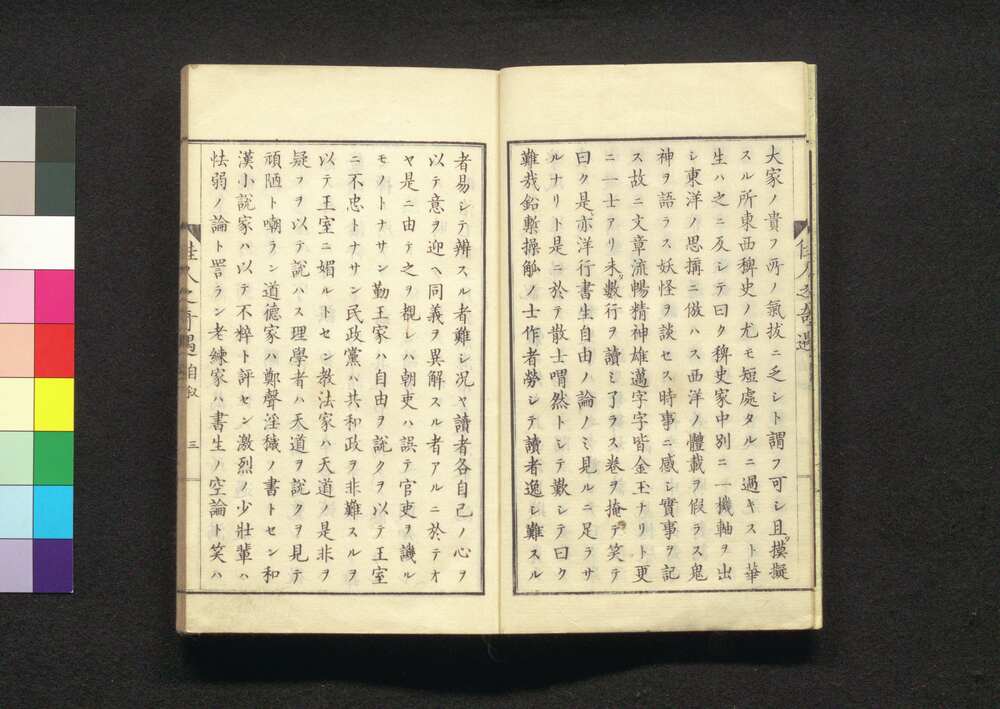 大家ノ貴フ所ノ氣拔ニ乏シト謂フ可シ且摸擬
スル所東西稗史ノ尤モ短處タルニ過キスト華
生ハ之ニ反シテ曰ク稗史家中別ニ一機軸ヲ出
シ東洋ノ思搆ニ倣ハス西洋ノ體載ヲ假ラス鬼
神ヲ語ラス妖怪ヲ談セス時事ニ感シ實事ヲ記
ス故ニ文章流暢精神雄邁字字皆金玉ナリト更
ニ一士アリ未數行ヲ讀ミ了ラス卷ヲ掩テ笑テ
曰ク是亦洋行書生自由ノ論ノミ見ルニ足ラサ
ルナリト是ニ於テ散士喟然トシテ歎シテ曰ク
難哉鉛槧操觚ノ士作者勞シテ讀者逸シ難スル
者易シテ辨スル者難シ况ヤ讀者各自己ノ心ヲ
以テ意ヲ迎ヘ同義ヲ異解スル者アルニ於テオ
ヤ是ニ由テ之ヲ觀レハ朝吏ハ誤テ官吏ヲ譏ル
モノトナサン勤王家ハ自由ヲ說クヲ以テ王室
ニ不忠トナサン民政黨ハ共和政ヲ非難スルヲ
以テ王室ニ媚ルトセン教法家ハ天道ノ是非ヲ
疑フヲ以テ說ハス理學者ハ天道ヲ說クヲ見テ
頑陋ト嘲ラン道德家ハ鄭聲淫穢ノ書トセン和
漢小說家ハ以テ不粹ト評セン激烈ノ少壯輩ハ
怯弱ノ論ト詈ラン老練家ハ書生ノ空論ト笑ハ
佳人之奇遇 自叙 三
佳人之奇遇